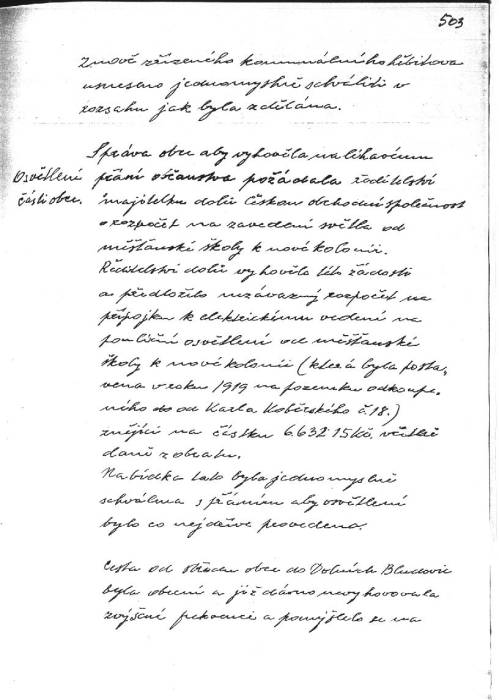 503
znově zřízeného komunálního hřbitova
usneseno jednomyslně schváliti v
rozsahu jak byla zdělána.
Osvětlení
části obce.
Správa obce aby vyhověla naléhavému
přání občanstva požádala ředitelství
majitelku dolů Českou obchodní společnost
o rozpočet na zavedení světla od
měšťanské školy k nové kolonii.
Ředitelství dolů vyhovělo této žádosti
a předložilo nezávazný rozpočet na
přípojku k elektrickému vedení na
pouliční osvětlení od měšťanské
školy k nové kolonii (která byla posta,
vena v roku 1919 na pozemku odkoupe,
ného od Karla Koběrského č. 18.)
znějící na částku 6.632.15 Kč. včítaně
daně z obratu.
Nabídka tato byla jednomyslně
schválena s přáním aby osvětlení
bylo co nejdříve provedeno.
Cesta od středu obce do Dolních Bludovic
byla obecní a již dávno nevyhovovala
zvýšené frekvenci a pomýšlelo se na